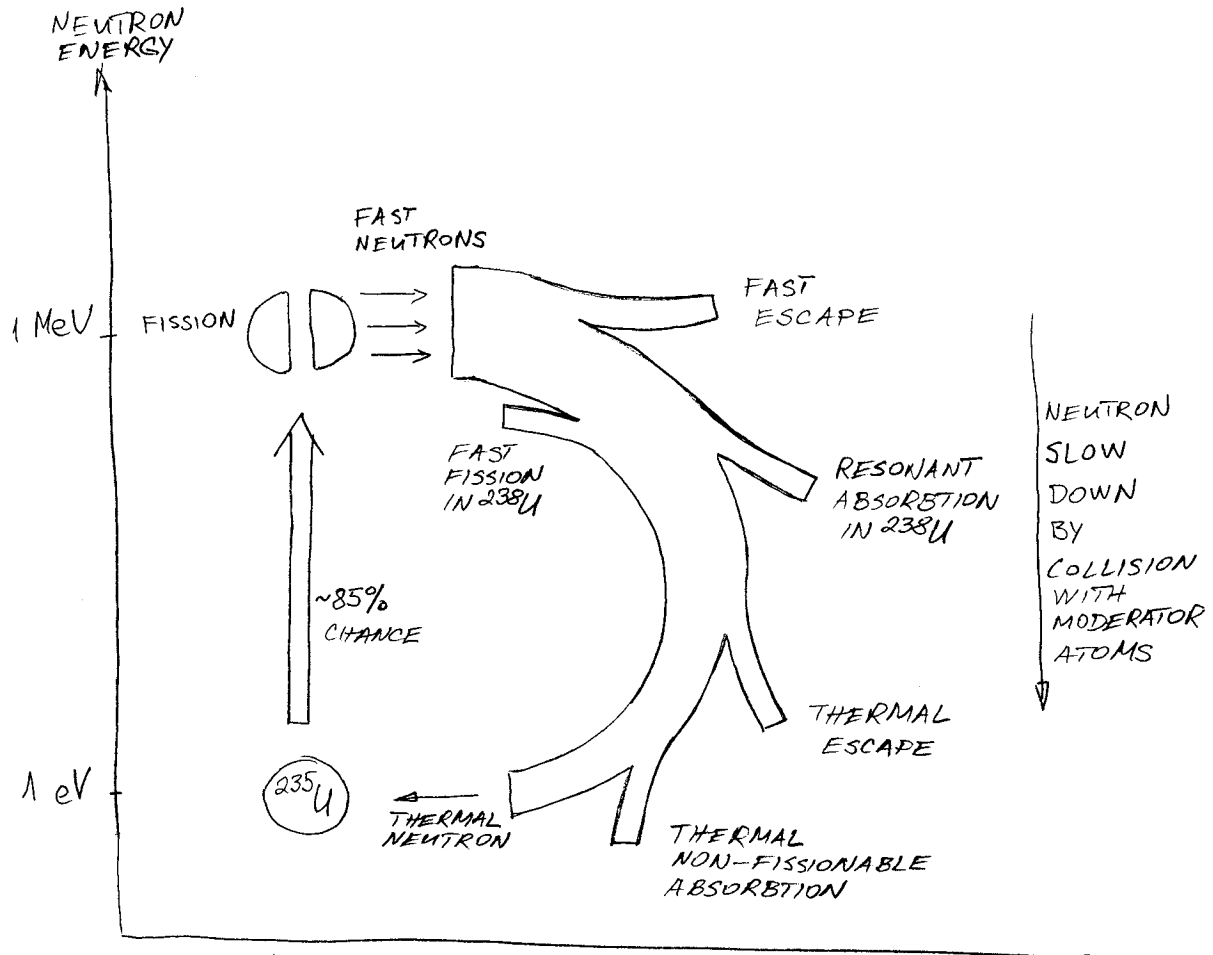 NEUTRON
ENERGY
FAST
NEUTRONS
1 MeV
FISSION
FAST
ESCAPE
FAST
FISSION
IN 238U
RESONANT
ABSORBTION
IN 238U
NEUTRON
SLOW
DOWN
BY
COLLISION
WITH
MODERATOR
ATOMS
~85%
CHANCE
THERMAL
ESCAPE
1 eV
235U
THERMAL
NEUTRON
THERMAL
NON-FISSIONABLE
ABSORBTION